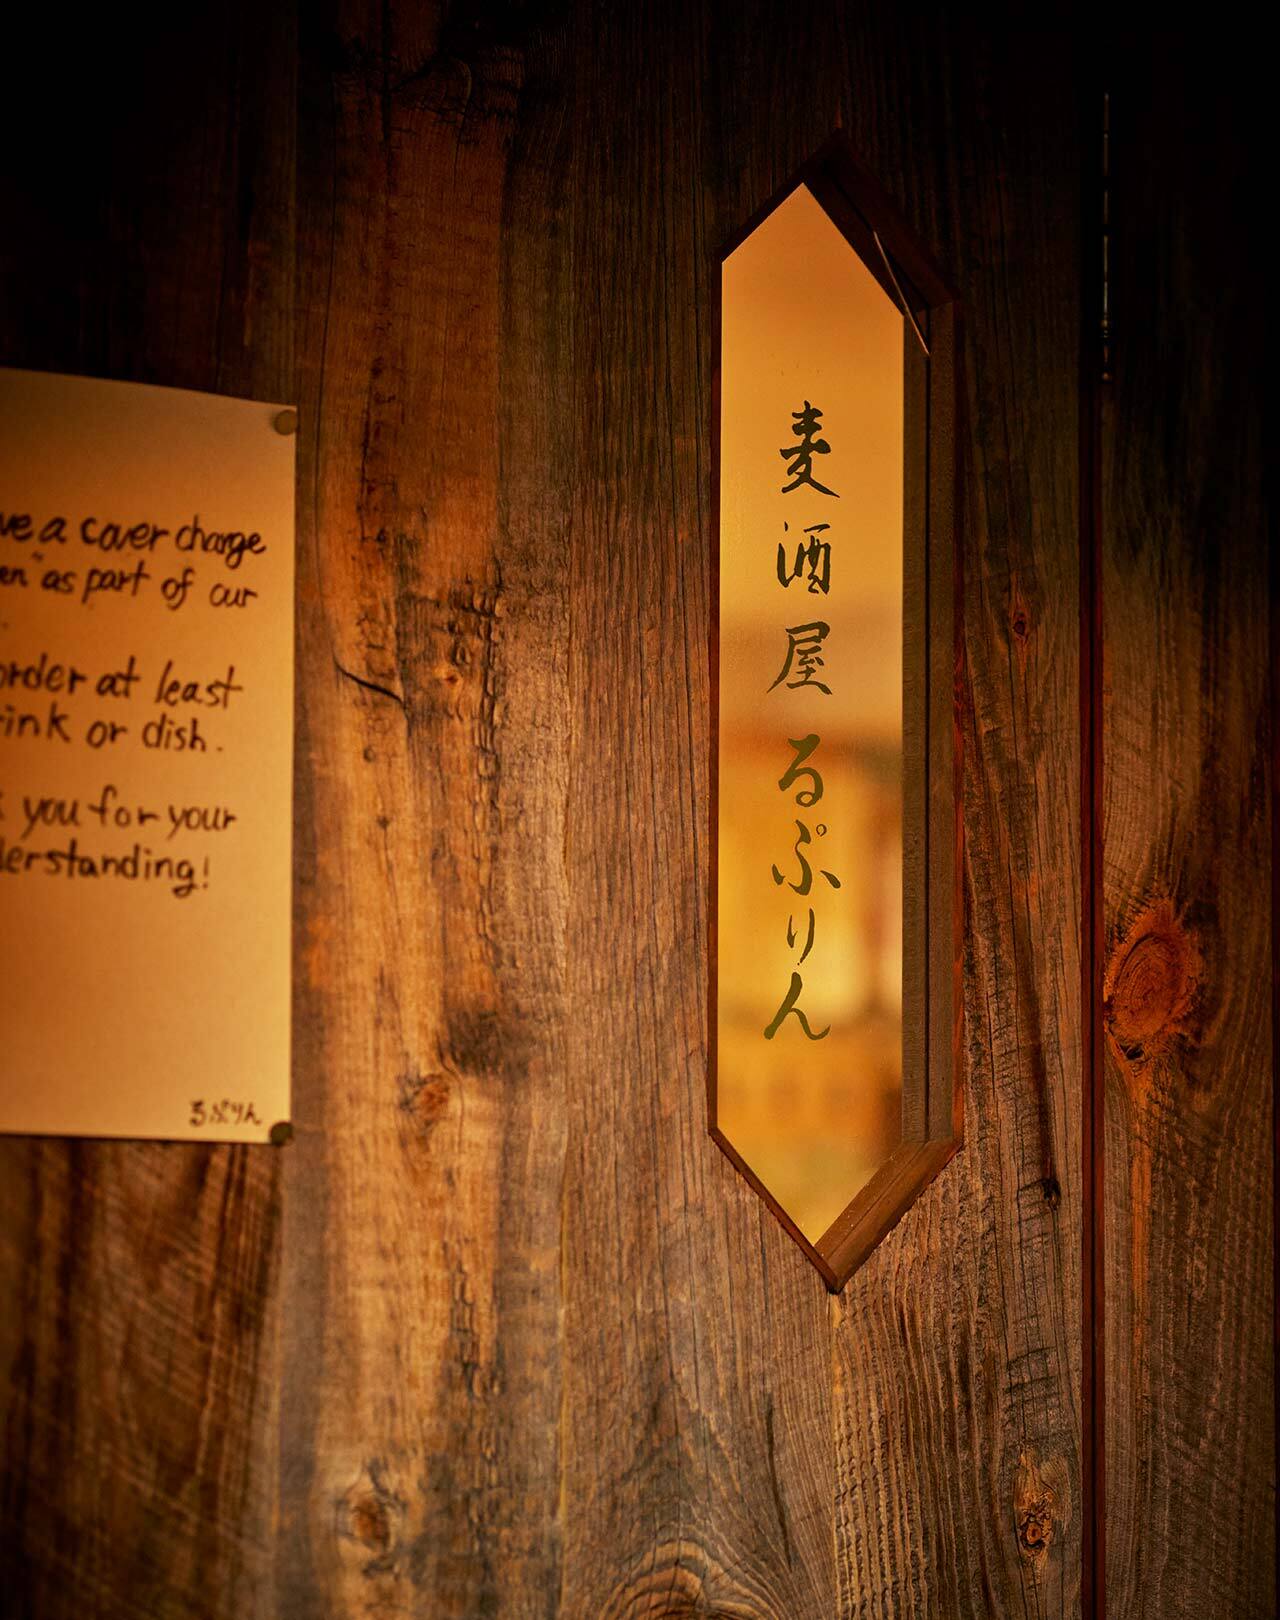 ve a cover charge
en" as part of our
order at least
rink or dish.
you for your
derstanding!
るぷりん
麦酒屋るぷりん